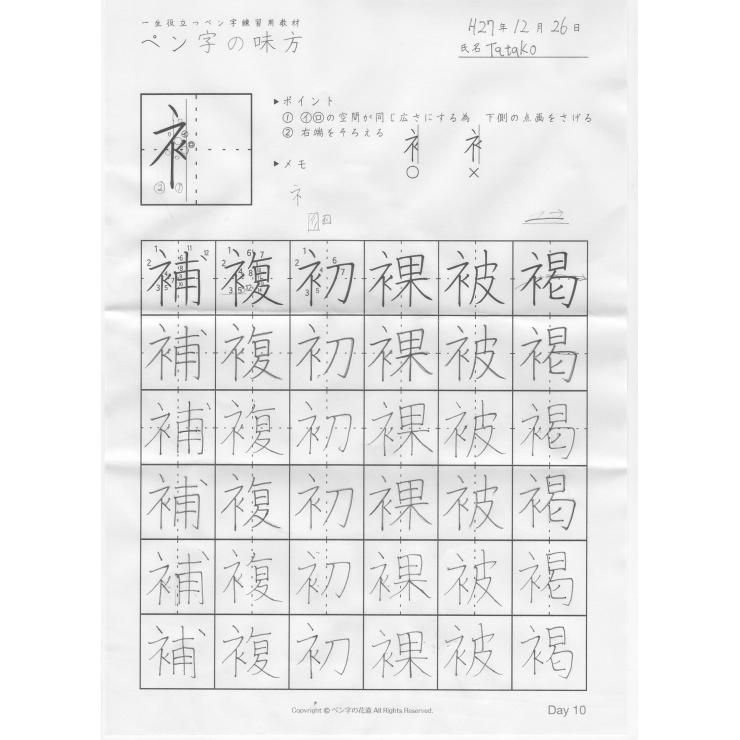 一生役立つペン字練習用教材
ペン字の味方
H27年12月26日
氏名 Tatako
▶ポイント
① ㋑㋺の空間が同じ広さにする為 下側の点画をさげる
② 右端をそろえる
○ ×
▶メモ
ネ
② ①
補 複 初 裸 被 褐
補 複 初 裸 被 褐
補 複 初 裸 被 褐
補 複 初 裸 被 褐
補 複 初 裸 被 褐
補 複 初 裸 被 褐
Copyright © ペン字の花道 All Rights Reserved.
Day 10